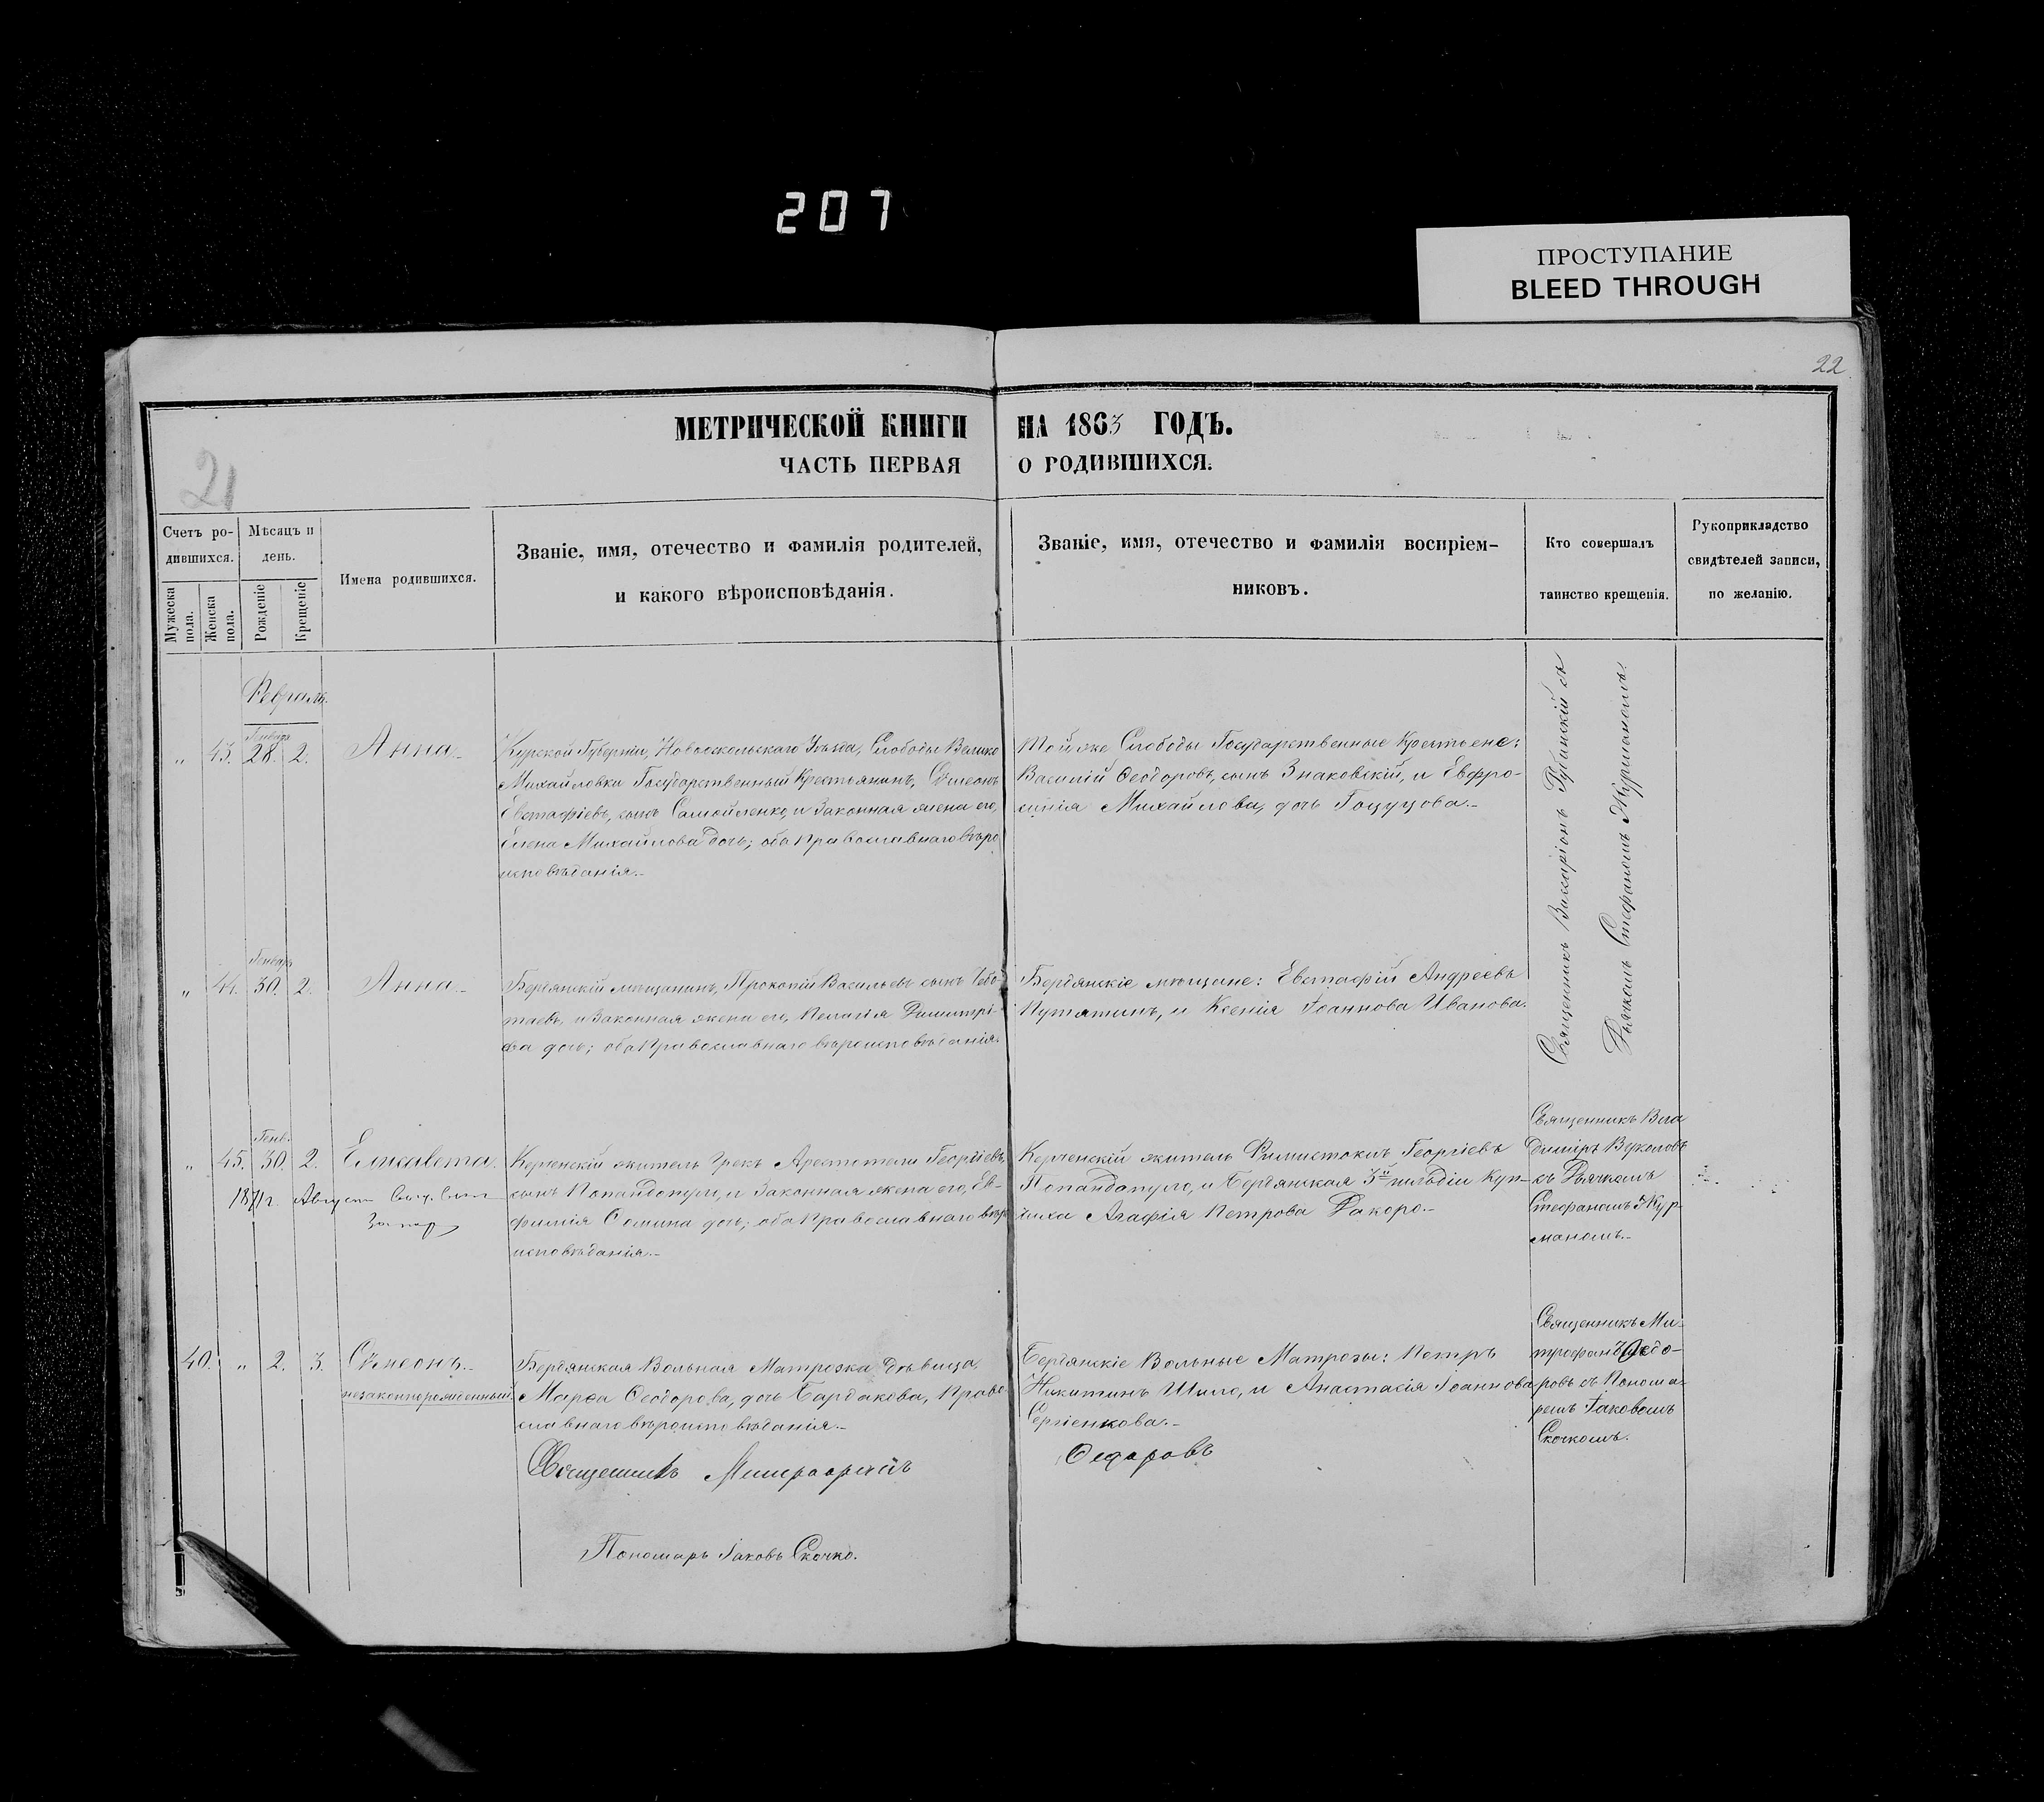 207
ПРОСТУПАНИЕ
BLEED THROUGH
22
21
МЕТРИЧЕСКОЙ КНИГИ НА 1863 ГОДЪ.
ЧАСТЬ ПЕРВАЯ О РОДИВШИХСЯ.
Счетъ ро-
дившихся.
Мужеска пола.
Женска пола.
Мѣсяцъ и
день.
Рожденіе
Крещеніе
Имена родившихся.
Званіе, имя, отечество и фамилія родителей,
и какого вѣроисповѣданія.
Званіе, имя, отечество и фамилія воспріем-
никовъ.
Кто совершалъ
таинство крещенія.
Рукоприкладство
свидѣтелей записи,
по желанію.
Февраль.
„ 43. Генваря 28. 2. Анна
Курской Губерніи, Новооскольскаго Уѣзда, Слободы Велико
Михайловки Государственный Крестьянинъ, Симеонъ
Евстафіевъ, сынъ Самойленко, и Законная жена его,
Елена Михайлова дочь; оба православнаго вѣро
исповѣданія.
Той же Слободы Государственные Крестьяне:
Василій Феодоровъ, сынъ Знаковскій, и Евфро-
синія Михайлова, дочь Гоцуцова.
Священникъ Виссаріонъ Рубинскій съ
Дьячкомъ Стефаномъ Журманомъ.
„ 44. Генваря 30. 2. Анна
Бердянскій мѣщанинъ, Прокопій Васильевъ сынъ Чебо-
таевъ, и Законная жена его, Пелагія Димитрі-
ева дочь; оба Православнаго вѣроисповѣданія.
Бердянскіе мѣщане: Евстафій Андреевъ
Путятинъ, и Ксенія Іоаннова Иванова.
„ 45. Генв. 30. 2. Елисавета.
1871 г. Август
Керченскій житель Грекъ Арестотели Георгіевъ,
сынъ Попандопуло, и Законная жена его, Ев-
фимія Сомина дочь; оба Православнаго вѣро
исповѣданія.
Керченскій житель Фимистоклъ Георгіевъ
Попандопуло, и Бердянская 3й гильдіи Куп-
чиха Агафія Петрова Дакоро.
Священникъ Вла
диміръ Верколовъ
съ Дьячкомъ
Стефаномъ Жур
маномъ.
40. „ 2. 3. Сѵмеонъ.
незаконнорожденный.
Бердянская Вольная Матрозка Дѣвица
Марѳа Феодорова, дочь Бардакова, Право
славнаго вѣроисповѣданія.
Бердянскіе Вольные Матрозы: Петръ
Никитинъ Шило, и Анастасія Іоаннова
Сергіенкова.
Священникъ Ми-
трофанъ Федо-
ровъ съ Понома-
ремъ Іаковомъ
Скочкомъ.
Священникъ Митрофанъ Федоровъ
Пономарь Іаковъ Скочко.